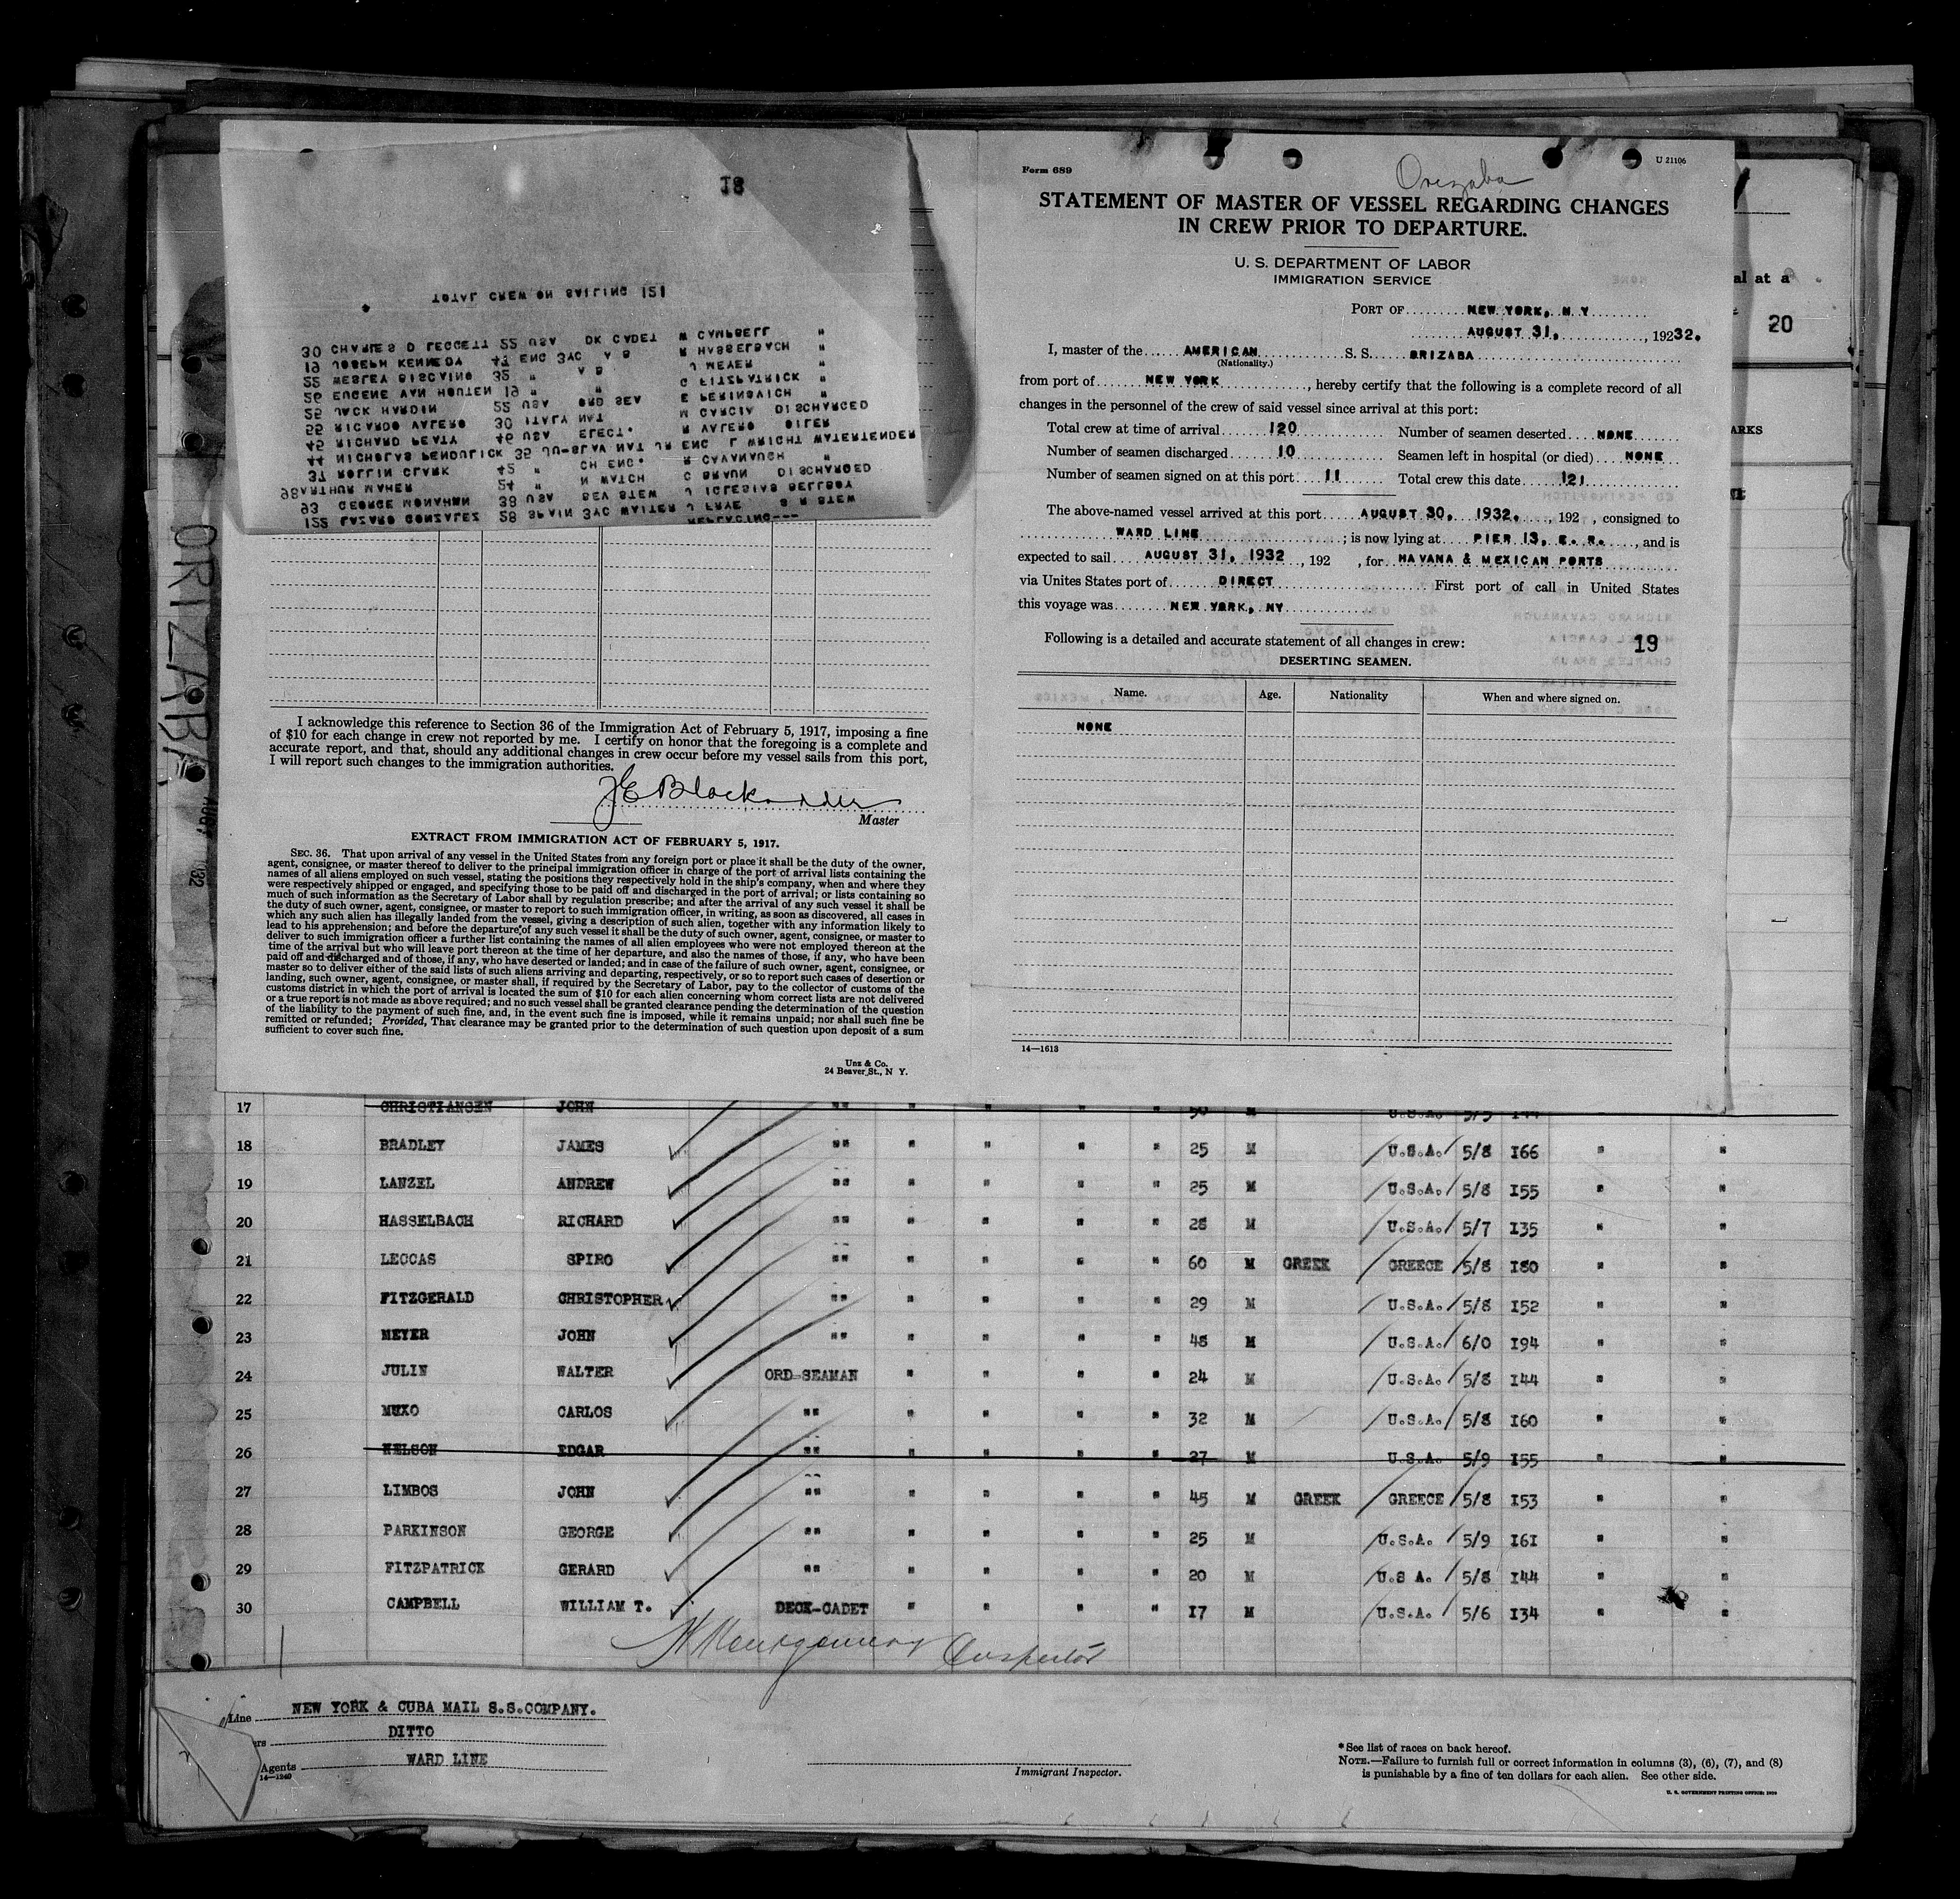 18
TOTAL CREW ON SAILING 121
30 CHARLES D LEGGETT 22 USA DK CADET W CAMPBELL "
19 JOSEPH KENNEDY 47 ENG 3AC A B R HASSELBACH "
22 WESLEY BISCAINO 32 " A B J MEYER "
26 EUGENE VAN HOUTEN 19 " " G FITZPATRICK "
25 JACK HARDIN 22 USA ORD SEA E PERINOVICH "
55 RICARDO VALERO 30 ITALY NAT M GARCIA DISCHARGED
45 RICHARD PEATY 46 USA ELECT. R VALERO OILER
44 NICHOLAS PENDULICK 35 JU-SLAV NAT JR ENG L WRIGHT WATERTENDER
37 ROLLIN CLARK 42 " CH ENG. R CAVANAUGH "
98 ARTHUR MAHER 54 " N WATCH C BRAUN DISCHARGED
93 GEORGE MONAHAN 39 USA SEA STEW J IGLESIAS BELLBOY
122 LAZARO GONZALEZ 28 SPAIN 3AC WAITER J FRYE S R STEW
REPLACING---
ORIZABA
I acknowledge this reference to Section 36 of the Immigration Act of February 5, 1917, imposing a fine
of $10 for each change in crew not reported by me. I certify on honor that the foregoing is a complete and
accurate report, and that, should any additional changes in crew occur before my vessel sails from this port,
I will report such changes to the immigration authorities.
Master
EXTRACT FROM IMMIGRATION ACT OF FEBRUARY 5, 1917.
SEC. 36. That upon arrival of any vessel in the United States from any foreign port or place it shall be the duty of the owner,
agent, consignee, or master thereof to deliver to the principal immigration officer in charge of the port of arrival lists containing the
names of all aliens employed on such vessel, stating the positions they respectively hold in the ship's company, when and where they
were respectively shipped or engaged, and specifying those to be paid off and discharged in the port of arrival; or lists containing so
much of such information as the Secretary of Labor shall by regulation prescribe; and after the arrival of any such vessel it shall be
the duty of such owner, agent, consignee, or master to report to such immigration officer, in writing, as soon as discovered, all cases in
which any such alien has illegally landed from the vessel, giving a description of such alien, together with any information likely to
lead to his apprehension; and before the departure of any such vessel it shall be the duty of such owner, agent, consignee, or master to
deliver to such immigration officer a further list containing the names of all alien employees who were not employed thereon at the
time of the arrival but who will leave port thereon at the time of her departure, and also the names of those, if any, who have been
paid off and discharged and of those, if any, who have deserted or landed; and in case of the failure of such owner, agent, consignee, or
master so to deliver either of the said lists of such aliens arriving and departing, respectively, or so to report such cases of desertion or
landing, such owner, agent, consignee, or master shall, if required by the Secretary of Labor, pay to the collector of customs of the
customs district in which the port of arrival is located the sum of $10 for each alien concerning whom correct lists are not delivered
or a true report is not made as above required; and no such vessel shall be granted clearance pending the determination of the question
of the liability to the payment of such fine, and, in the event such fine is imposed, while it remains unpaid; nor shall such fine be
remitted or refunded; Provided, That clearance may be granted prior to the determination of such question upon deposit of a sum
sufficient to cover such fine.
Unz & Co.
24 Beaver St., N Y.
Form 689
U 21106
Orizaba
STATEMENT OF MASTER OF VESSEL REGARDING CHANGES
IN CREW PRIOR TO DEPARTURE.
U. S. DEPARTMENT OF LABOR
IMMIGRATION SERVICE
PORT OF NEW YORK, N Y
AUGUST 31, , 19232.
I, master of the AMERICAN S. S. ORIZABA
(Nationality.)
from port of NEW YORK , hereby certify that the following is a complete record of all
changes in the personnel of the crew of said vessel since arrival at this port:
Total crew at time of arrival 120 Number of seamen deserted NONE
Number of seamen discharged 10 Seamen left in hospital (or died) NONE
Number of seamen signed on at this port 11 Total crew this date 121
The above-named vessel arrived at this port AUGUST 30, 1932. , 192 , consigned to
WARD LINE ; is now lying at PIER 13, E. R. , and is
expected to sail AUGUST 31, 1932 , 192 , for HAVANA & MEXICAN PORTS
via Unites States port of DIRECT First port of call in United States
this voyage was NEW YORK, NY
Following is a detailed and accurate statement of all changes in crew: 19
DESERTING SEAMEN.
Name. Age. Nationality When and where signed on.
NONE
14—1613
al at a
20
ARKS
17 CHRISTIANSEN JOHN "" " " " " 50 M U.S.A. 5/5 144
18 BRADLEY JAMES "" " " " " 25 M U.S.A. 5/8 166 " "
19 LANZEL ANDREW "" " " " " 25 M U.S.A. 5/8 155 " "
20 HASSELBACH RICHARD "" " " " " 28 M U.S.A. 5/7 135 " "
21 LECCAS SPIRO "" " " " " 60 M GREEK GREECE 5/8 180 " "
22 FITZGERALD CHRISTOPHER "" " " " " 29 M U.S.A. 5/8 152 " "
23 MEYER JOHN "" " " " " 48 M U.S.A. 6/0 194 " "
24 JULIN WALTER ORD-SEAMAN " " " " 24 M U.S.A. 5/8 144 " "
25 MUXO CARLOS "" " " " " 32 M U.S.A. 5/8 160 " "
26 NELSON EDGAR "" " " " " 27 M U.S.A. 5/9 155 " "
27 LIMBOS JOHN "" " " " " 45 M GREEK GREECE 5/8 153 " "
28 PARKINSON GEORGE "" " " " " 25 M U.S.A. 5/9 161 " "
29 FITZPATRICK GERARD "" " " " " 20 M U.S A. 5/8 144 " "
30 CAMPBELL WILLIAM T. DECK-CADET " " " " 17 M U.S.A. 5/6 134 " "
Montgomery Inspector
Line NEW YORK & CUBA MAIL S.S.COMPANY.
ers DITTO
Agents WARD LINE
14—1240
Immigrant Inspector.
*See list of races on back hereof.
NOTE.—Failure to furnish full or correct information in columns (3), (6), (7), and (8)
is punishable by a fine of ten dollars for each alien. See other side.